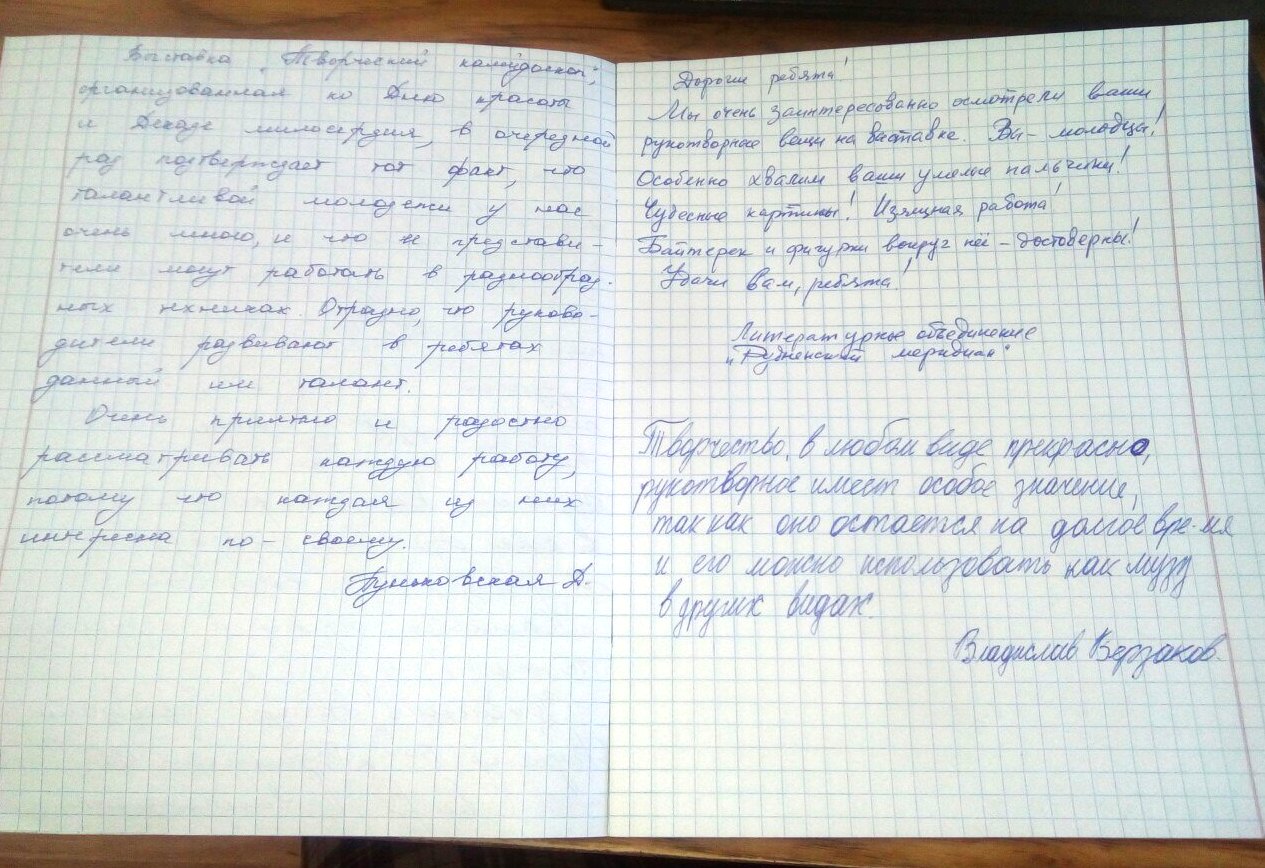 Выставка "Творческий калейдоскоп",
организованная ко Дню красоты
и Декаде милосердия, в очередной
раз подтверждает тот факт, что
талантливой молодежи у нас
очень много, и что и представи-
тели могут работать в разнообраз.
ных техниках. Отрадно, что руково-
дители развивают в ребятах
данный им талант.
Очень приятно и радостно
рассматривать каждую работу,
потому что каждая из них
интересна по-своему.
Пуньковская Д.
Дорогие ребята!
Мы очень заинтересованно осмотрели ваши
рукотворные вещи на выставке. Вы - молодцы!
Особенно хвалим ваши умелые пальчики!
Чудесные картины! Изящная работа!
Байтерек и фигурки вокруг неё - достоверны!
Удачи вам, ребята!
Литературное объединение
"Рудненский меридиан"
Творчество, в любом виде прекрасно,
рукотворное имеет особое значение,
так как оно остается на долгое вре-мя
и его можно использовать как музу
в других видах.
Владислав Верзаков.